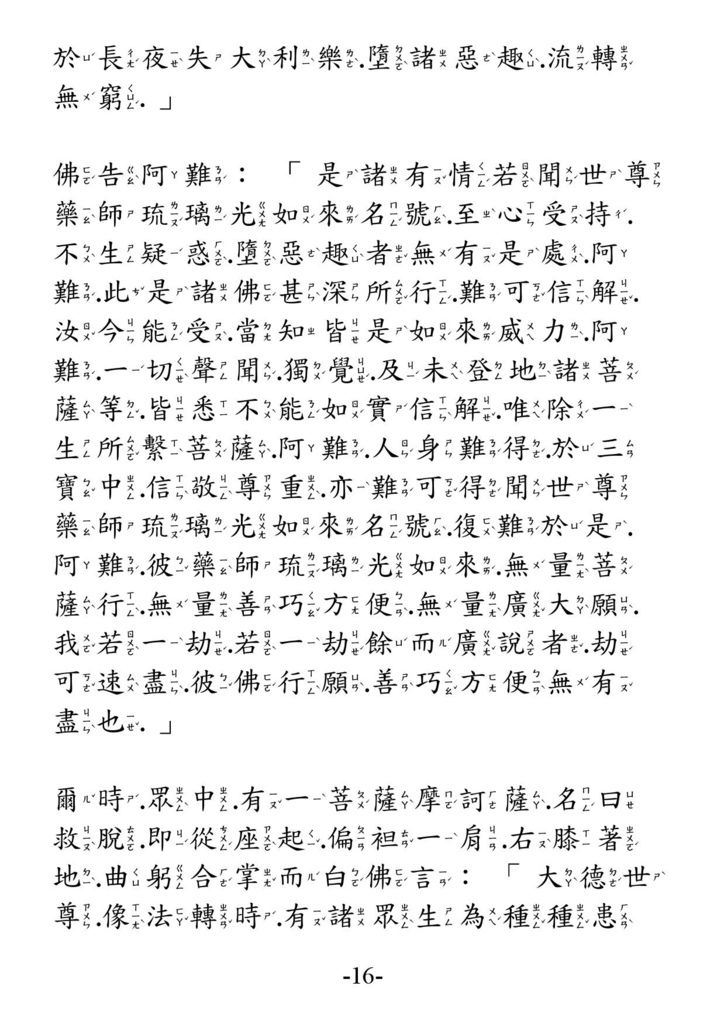 於長夜失大利樂.墮諸惡趣.流轉
無窮.」
佛告阿難：「是諸有情若聞世尊
藥師琉璃光如來名號.至心受持.
不生疑惑.墮惡趣者無有是處.阿
難.此是諸佛甚深所行.難可信解.
汝今能受.當知皆是如來威力.阿
難.一切聲聞.獨覺.及未登地諸菩
薩等.皆悉不能如實信解.唯除一
生所繫菩薩.阿難.人身難得.於三
寶中.信敬尊重.亦難可得聞世尊
藥師琉璃光如來名號.復難於是.
阿難.彼藥師琉璃光如來.無量菩
薩行.無量善巧方便.無量廣大願.
我若一劫.若一劫餘而廣說者.劫
可速盡.彼佛行願.善巧方便無有
盡也.」
爾時.眾中.有一菩薩摩訶薩.名曰
救脫.即從座起.偏袒一肩.右膝著
地.曲躬合掌而白佛言：「大德世
尊.像法轉時.有諸眾生為種種患
-16-